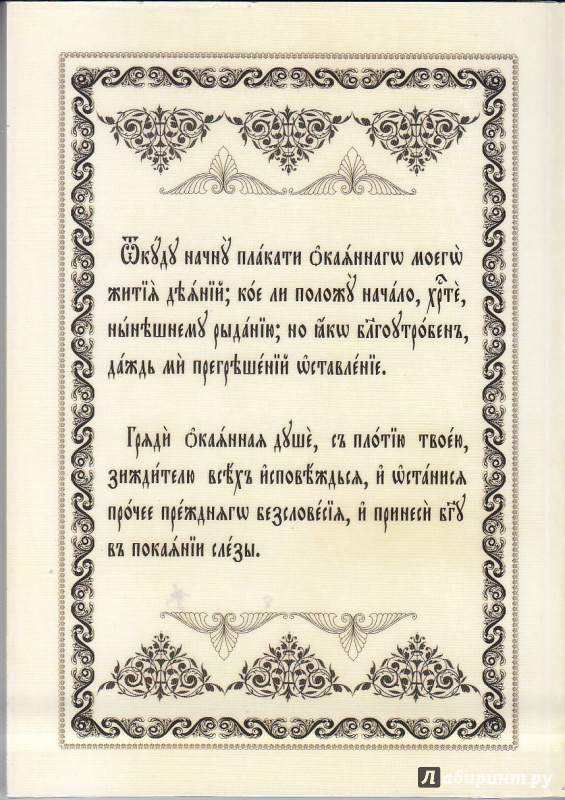 Ѿкꙋ́дꙋ начнꙋ̀ пла́кати ѻ҆каѧ́ннагѡ моегѡ̀
житїѧ̀ дѣѧ́нїй; ко́е ли положꙋ̀ нача́ло, хрⷭ҇тѐ,
ны́нѣшнемꙋ рыда́нїю; но ꙗ҆́кѡ бл҃гоꙋтро́бенъ,
да́ждь мѝ прегрѣше́нїй ѡ҆ставле́нїе.
Грѧдѝ ѻ҆каѧ́ннаѧ дꙋшѐ, съ пло́тїю твое́ю,
зижди́телю всѣ́хъ и҆сповѣ́ждьсѧ, и҆ ѡ҆ста́нисѧ
про́чее пре́ждн҄ѧгѡ безслове́сїѧ, и҆ принесѝ бг҃ꙋ
въ покаѧ́нїи сле́зы.
Лабиринт.ру